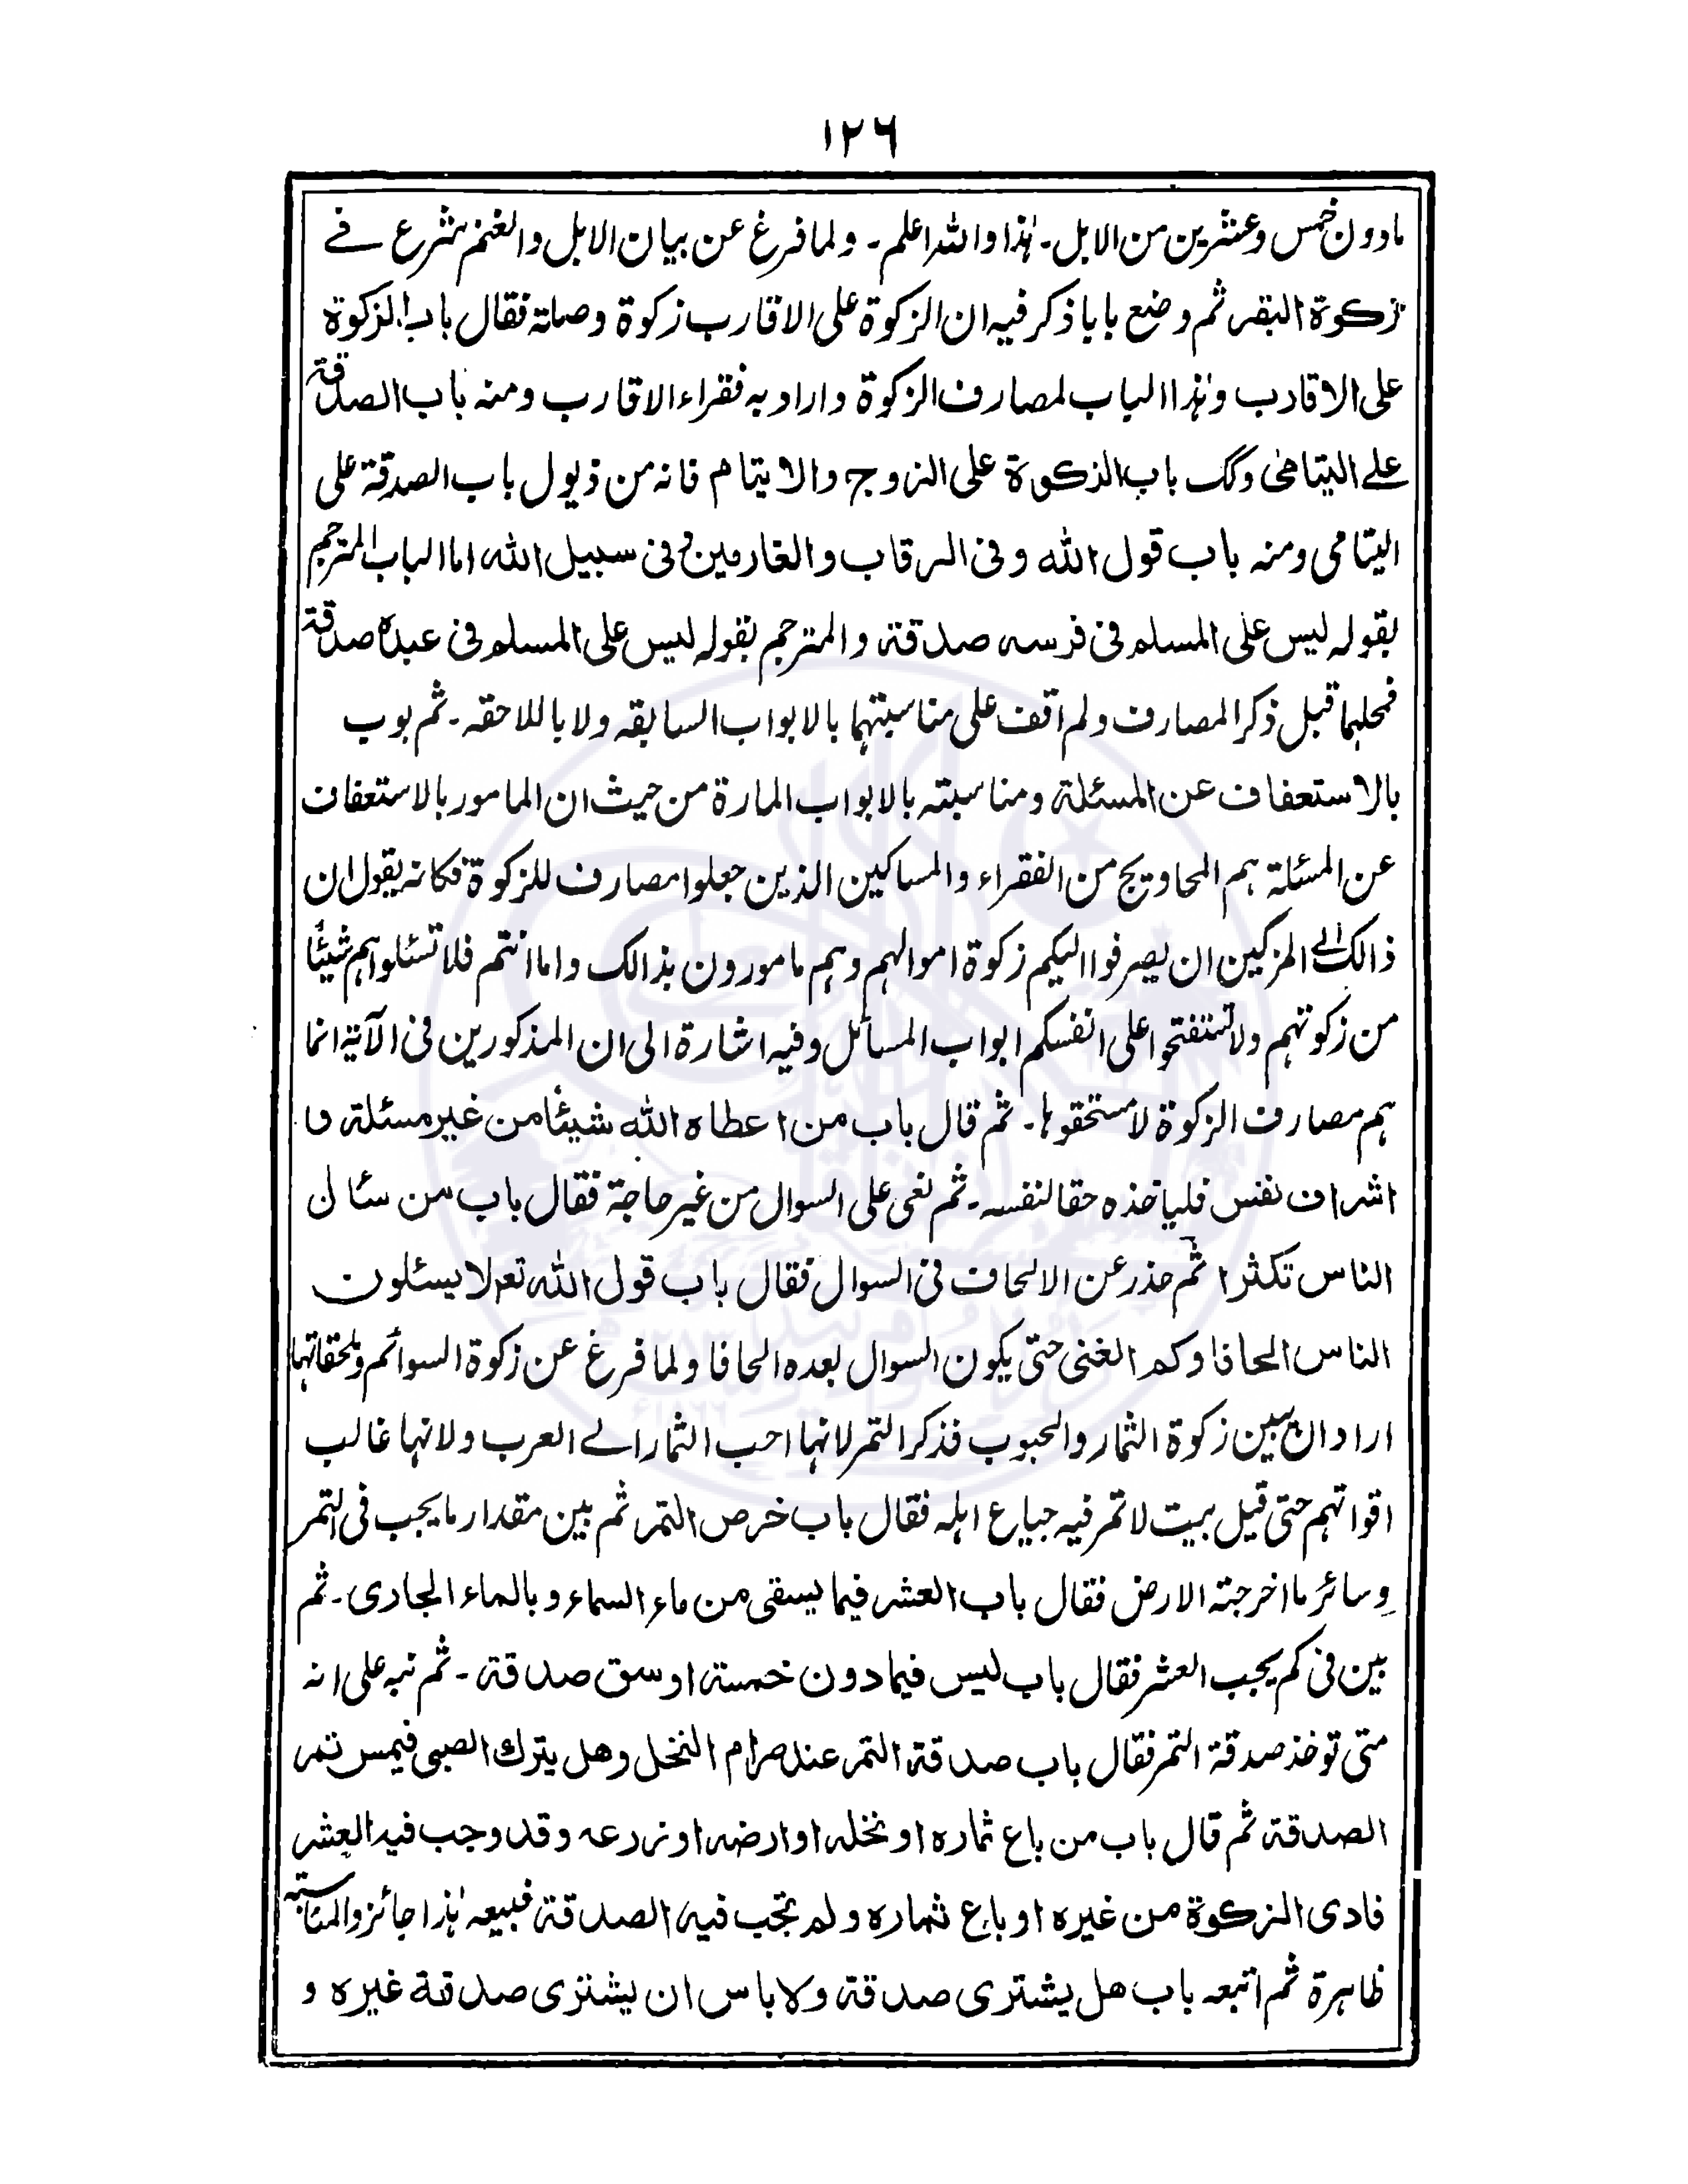 ١٢٦
مادون خمس وعشرين من الابل۔ هٰذا والله اعلم۔ ولما فرغ عن بيان الابل والغنم شرع في
زكوة البقر ثم وضع بابا ذكر فيه ان الزكوة على الاقارب زكوة وصلة فقال باب الزكوة
على الاقارب وهٰذا الباب لمصارف الزكوة واراد به فقراء الاقارب ومنه باب الصدقة
على اليتامىٰ وكك باب الزكوة على الزوج والايتام فانه من ذيول باب الصدقة على
اليتامى ومنه باب قول الله وفى الرقاب والغارمين وفى سبيل الله اما الباب المترجم
بقوله ليس على المسلم فى فرسه صدقة والمترجم بقوله ليس على المسلم فى عبده صدقة
فمحلهما قبل ذكر المصارف ولم اقف على مناسبتهما بالابواب السابقه ولا باللاحقه۔ ثم بوب
بالاستعفاف عن المسئلة ومناسبته بالابواب المارة من حيث ان المامور بالاستعفاف
عن المسئلة هم المحاويج من الفقراء والمساكين الذين جعلوا مصارف للزكوة فكانه يقول ان
ذالك الى المزكين ان يصرفوا اليكم زكوة اموالهم وهم مامورون بذالك واما انتم فلا تسئلوا هم شيئًا
من زكوتهم ولا تستفتحوا على انفسكم ابواب المسائل وفيه اشارة الى ان المذكورين فى الآية انما
هم مصارف الزكوة لا مستحقوها۔ ثم قال باب من اعطاه الله شيئًا من غير مسئلة و
اشراف نفس فلياخذه حقا لنفسه۔ ثم نعى على السوال من غير حاجة فقال باب من سئال
الناس تكثرا ثم حذر عن الالحاف فى السوال فقال باب قول الله تعہ لا يسئلون
الناس الحافا وكم الغنى حتى يكون السوال بعده الحافا ولما فرغ عن زكوة السوائم وملحقاتها
اراد ان يبين زكوة الثمار والحبوب فذكر التمر لانها احب الثمار الى العرب ولانها غالب
اقواتهم حتى قيل بيت لا تمر فيه جياع اهله فقال باب خرص التمر ثم بين مقدار ما يجب فى التمر
وسائر ما اخرجته الارض فقال باب العشر فيما يسقى من ماء السماء وبالماء الجارى۔ ثم
بين فى كم يجب العشر فقال باب ليس فيما دون خمسة اوسق صدقة۔ ثم نبه على انه
متى توخذ صدقة التمر فقال باب صدقة التمر عند صرام النخل وهل يترك الصبى فيمس تمر
الصدقة ثم قال باب من باع ثماره او نخله او ارضه او زرعه وقد وجب فيه العشر
فادى الزكوة من غيره او باع ثماره ولم تجب فيه الصدقة فبيعه هٰذا جائز والمناسبة
ظاهرة ثم اتبعه باب هل يشترى صدقة ولا باس ان يشترى صدقة غيره و